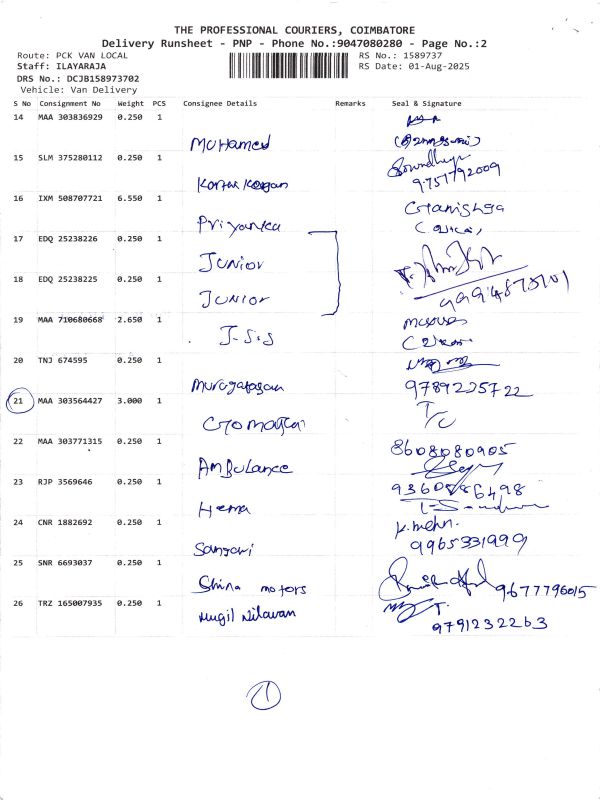 THE PROFESSIONAL COURIERS, COIMBATORE
Delivery Runsheet - PNP - Phone No.:9047080280 - Page No.:2
Route: PCK VAN LOCAL
RS No.: 1589737
Staff: ILAYARAJA
RS Date: 01-Aug-2025
DRS No.: DCJB158973702
Vehicle: Van Delivery
S No Consignment No Weight PCS Consignee Details Remarks Seal & Signature
14 MAA 303836929 0.250 1
Mohamed
15 SLM 375280112 0.250 1
9751792009
16 IXM 508707721 6.550 1
Priyanka
17 EDQ 25238226 0.250 1
Junior
18 EDQ 25238225 0.250 1
Junior
19 MAA 710680668 2.650 1
20 TNJ 674595 0.250 1
Murugatasan 9789225722
21 MAA 303564427 3.000 1
T/C
22 MAA 303771315 0.250 1
Ambulance 8608080905
23 RJP 3569646 0.250 1
Hema 9360886498
24 CNR 1882692 0.250 1
K.mehn.
9965331999
25 SNR 6693037 0.250 1
Shina motors 9677796015
26 TRZ 165007935 0.250 1
Mugil Nilavan
9791232263
1